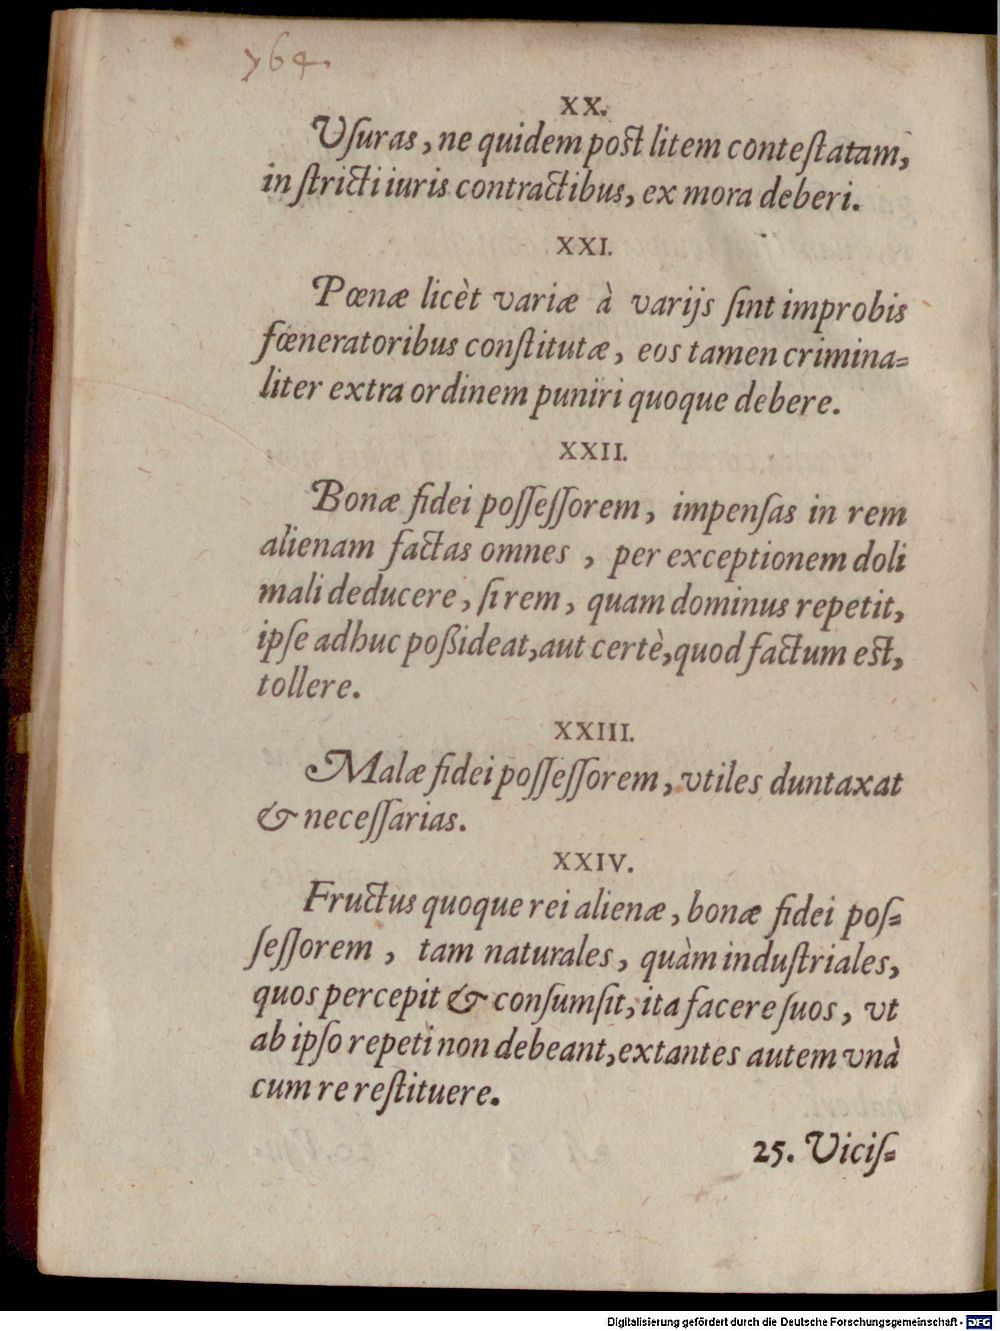 764.
XX.
Vſuras, ne quidem poſt litem conteſtatam,
in ſtricti iuris contractibus, ex mora deberi.
XXI.
Pœnæ licèt variæ à varijs ſint improbis
fœneratoribus conſtitutæ, eos tamen crimina-
liter extra ordinem puniri quoque debere.
XXII.
Bonæ fidei poſſeſſorem, impenſas in rem
alienam factas omnes, per exceptionem doli
mali deducere, ſi rem, quam dominus repetit,
ipſe adhuc poßideat, aut certè, quod factum eſt,
tollere.
XXIII.
Malæ fidei poſſeſſorem, vtiles duntaxat
& neceſſarias.
XXIV.
Fructus quoque rei alienæ, bonæ fidei poſ-
ſeſſorem, tam naturales, quàm induſtriales,
quos percepit & conſumſit, ita facere ſuos, vt
ab ipſo repeti non debeant, extantes autem vnà
cum re reſtituere.
25. Viciſ-
Digitalisierung gefördert durch die Deutsche Forschungsgemeinschaft - DFG